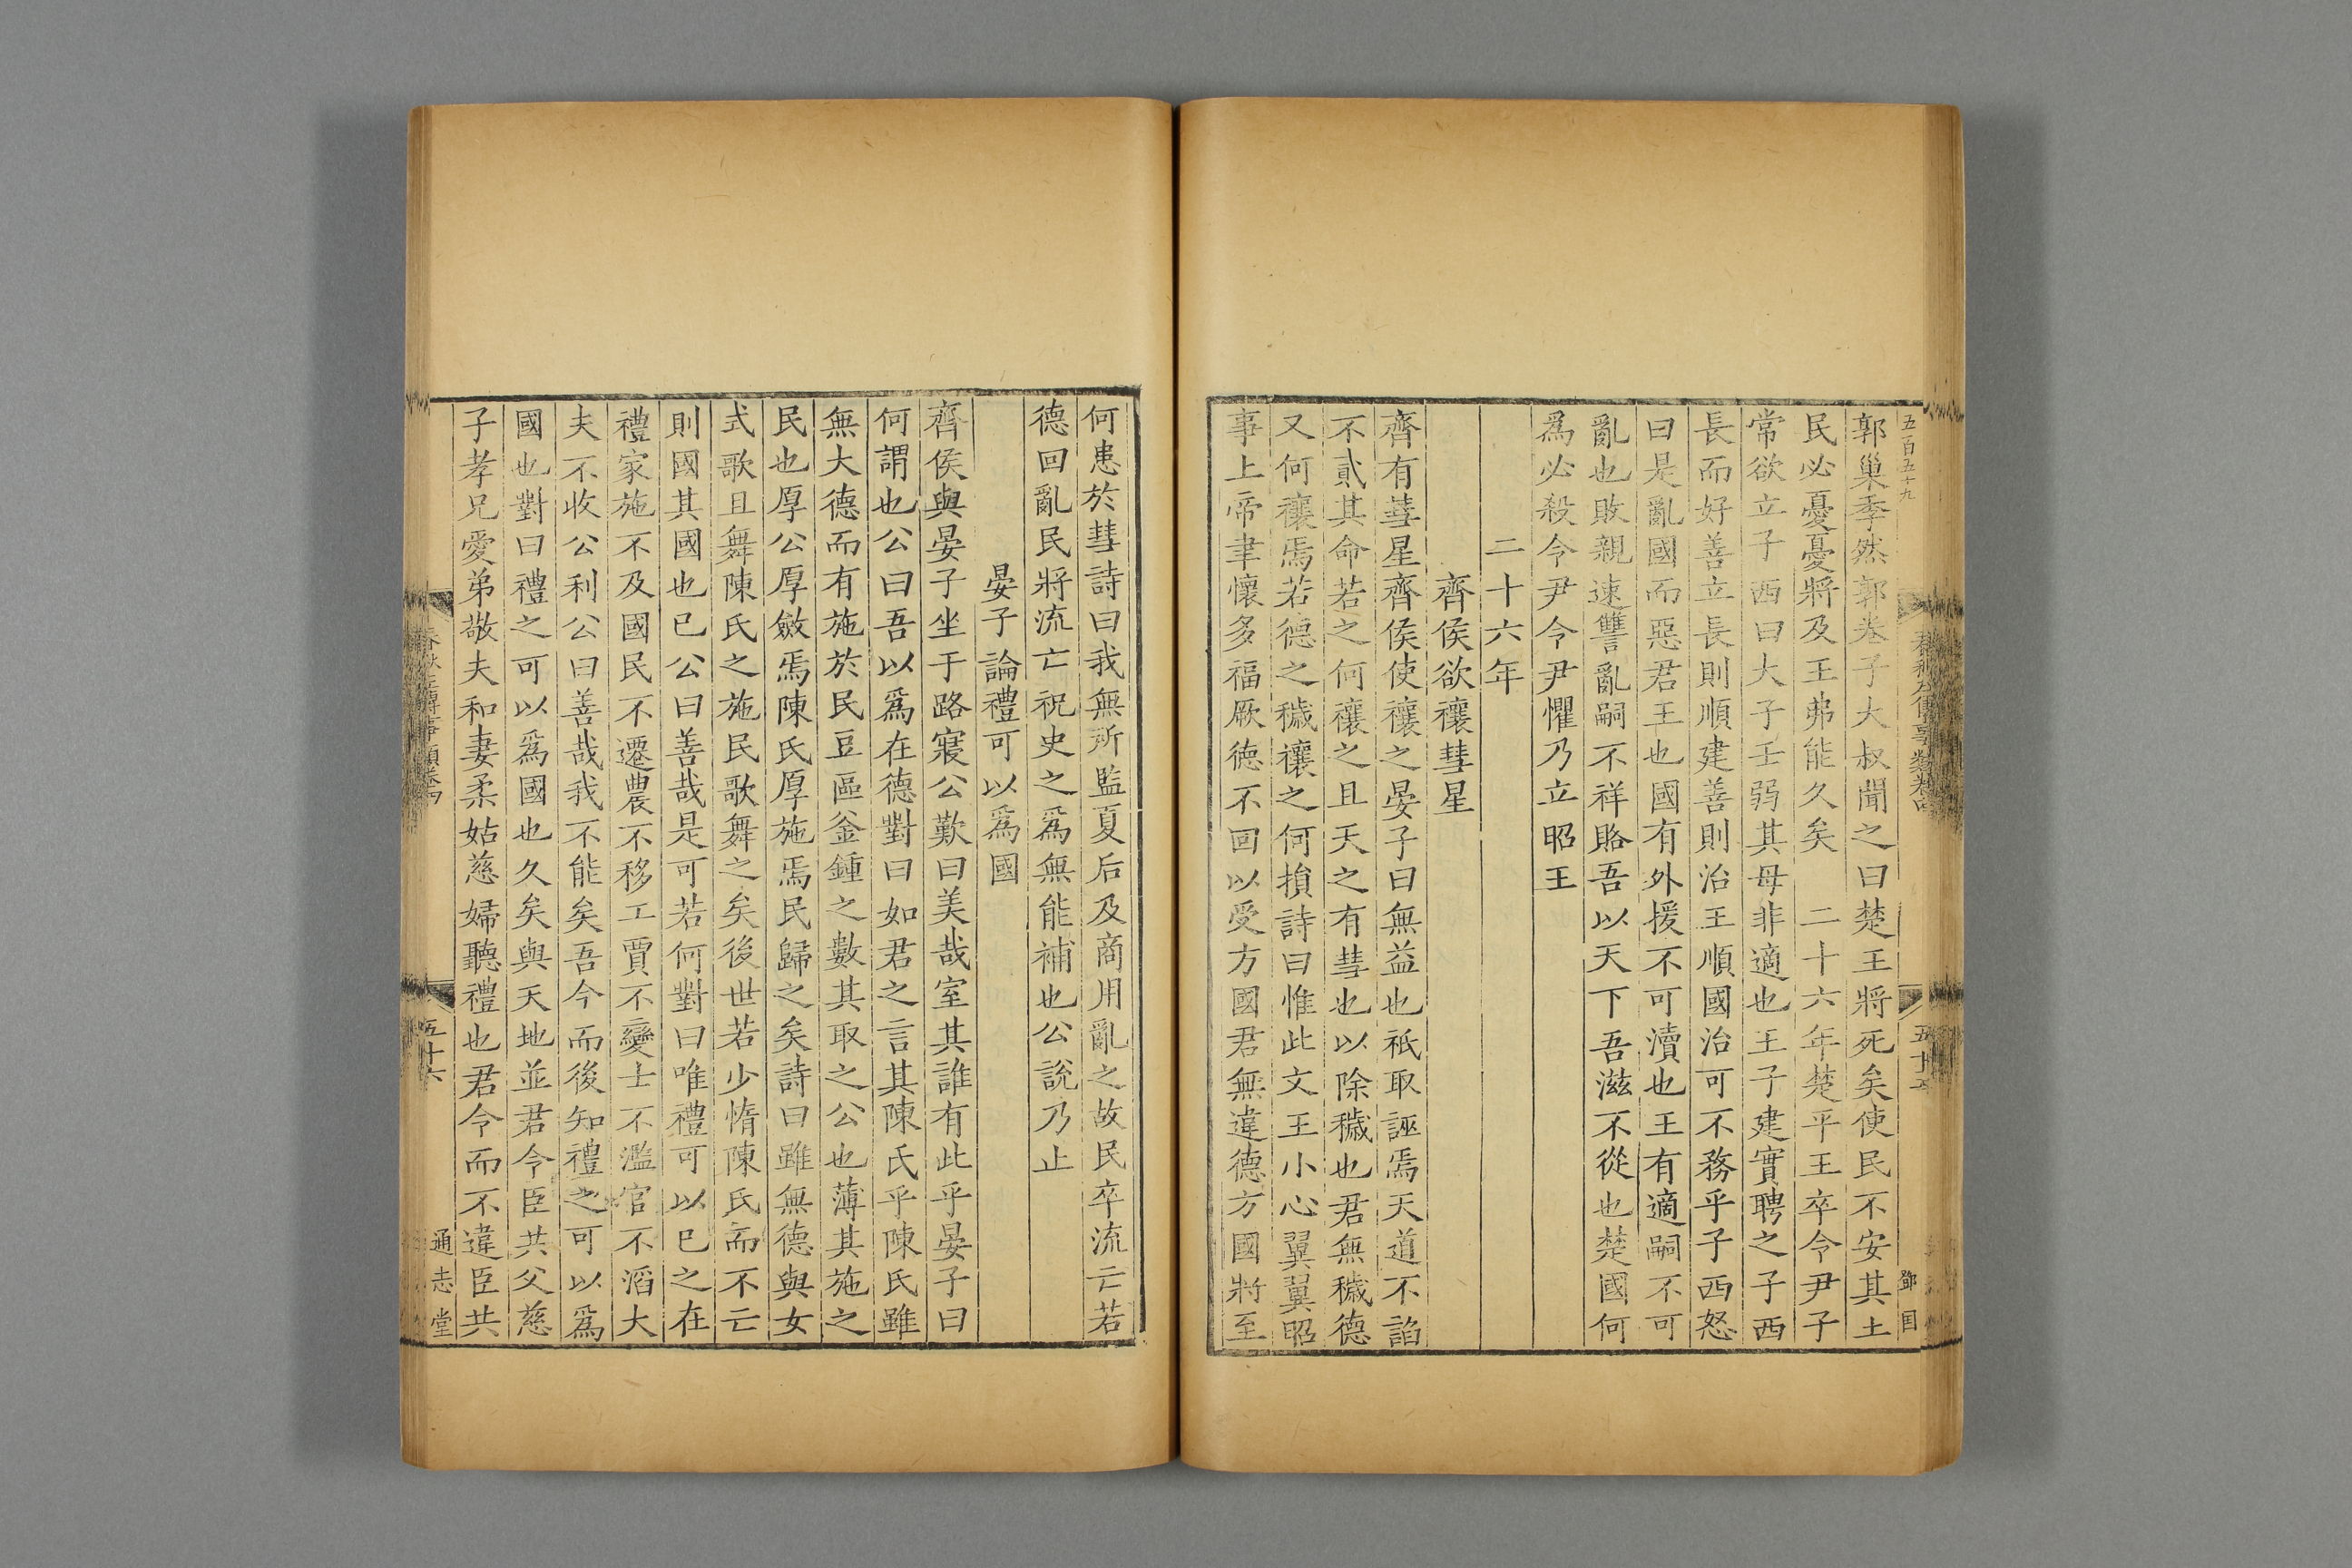 五百五十九
郭巢季然郭卷子大叔聞之曰楚王將死矣使民不安其土
民必憂憂將及王弗能久矣 二十六年楚平王卒令尹子
常欲立子西曰大子壬弱其母非適也王子建實聘之子西
長而好善立長則順建善則治王順國治可不務乎子西怒
曰是亂國而惡君王也國有外援不可瀆也王有適嗣不可
亂也敗親速讐亂嗣不祥賂吾以天下吾滋不從也楚國何
爲必殺令尹令尹懼乃立昭王
二十六年
齊侯欲禳彗星
齊有彗星齊侯使禳之晏子曰無益也祇取誣焉天道不謟
不貳其命若之何禳之且天之有彗也以除穢也君無穢德
又何禳焉若德之穢禳之何損詩曰惟此文王小心翼翼昭
事上帝聿懷多福厥德不回以受方國君無違德方國將至
何患於彗詩曰我無所監夏后及商用亂之故民卒流亡若
德回亂民將流亡祝史之爲無能補也公說乃止
晏子論禮可以爲國
齊侯與晏子坐于路寢公歎曰美哉室其誰有此乎晏子曰
何謂也公曰吾以爲在德對曰如君之言其陳氏乎陳氏雖
無大德而有施於民豆區釜鍾之數其取之公也薄其施之
民也厚公厚斂焉陳氏厚施焉民歸之矣詩曰雖無德與女
式歌且舞陳氏之施民歌舞之矣後世若少惰陳氏而不亡
則國其國也已公曰善哉是可若何對曰唯禮可以已之在
禮家施不及國民不遷農不移工賈不變士不濫官不滔大
夫不收公利公曰善哉我不能矣吾今而後知禮之可以爲
國也對曰禮之可以爲國也久矣與天地並君令臣共父慈
子孝兄愛弟敬夫和妻柔姑慈婦聽禮也君令而不違臣共
春秋左傳事類卷四
五十六
通志堂